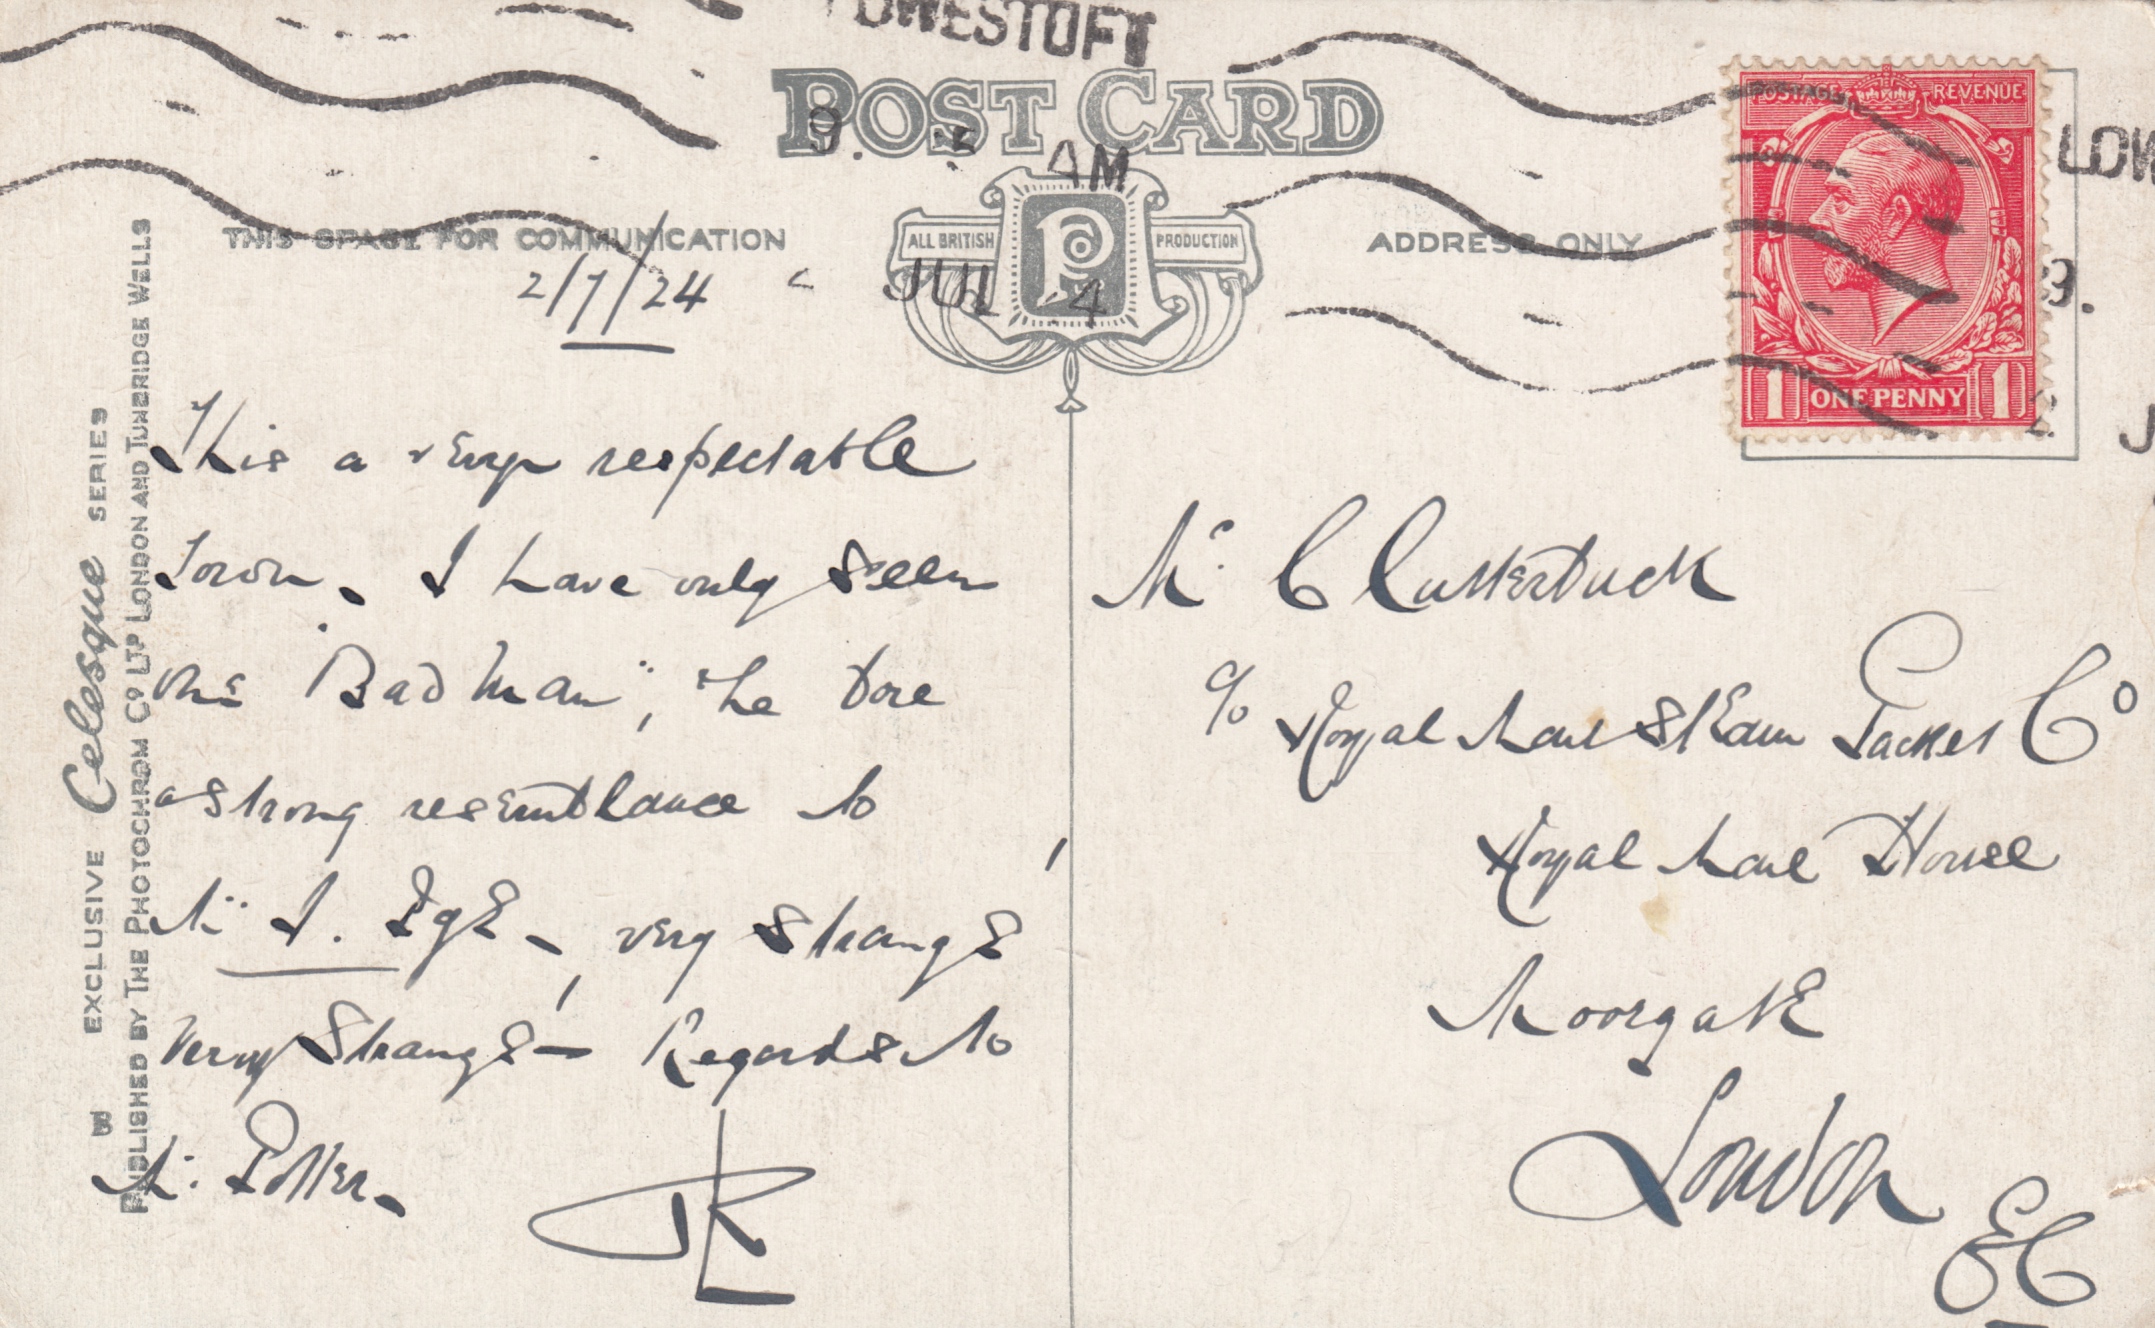 LOWESTOFT
POST CARD
9. 5 AM
ALL BRITISH PRODUCTION
THIS SPACE FOR COMMUNICATION
ADDRESS ONLY
JUL 4
POSTAGE REVENUE
1 ONE PENNY 1
LOW
9.
2/7/24
This a very respectable
Town. I have only seen
one "Bad Man", he bore
a strong resemblance to
Mr J. Ege, very strange
very strange – Regards to
M. Potter.
JKL
Mr C Clutterbuck
c/o Royal Mail Steam Packet Co
Royal Mail House
Moorgate
London
EC
EXCLUSIVE Celesque SERIES
PUBLISHED BY THE PHOTOCHROM CO LTD LONDON AND TUNBRIDGE WELLS